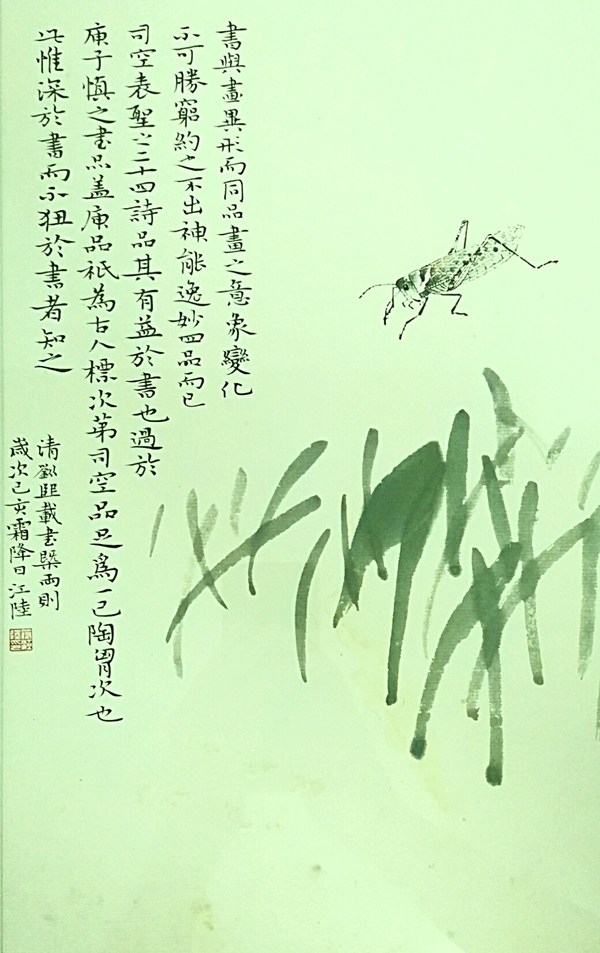 書與畫異形而同品畫之意象變化
不可勝窮約之不出神能逸妙四品而已
司空表聖之二十四詩品其有益於書也過於
庾子慎之書品蓋庾品祇為古人標次第司空品足爲一己陶胷次也
此惟深於書而不狃於書者知之
清劉熙載書槩兩則
歲次己亥霜降日江陸